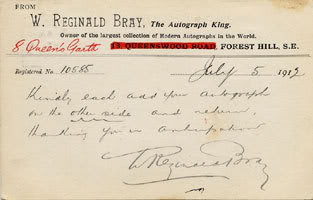 FROM
W. REGINALD BRAY, The Autograph King.
Owner of the largest collection of Modern Autographs in the World.
8 Queen's Garth 13, QUEENSWOOD ROAD, FOREST HILL, S.E.
Registered No. 10585 July 5 1912
Kindly each add your autograph
on the other side and return,
thanking you in anticipation
W Reginald Bray